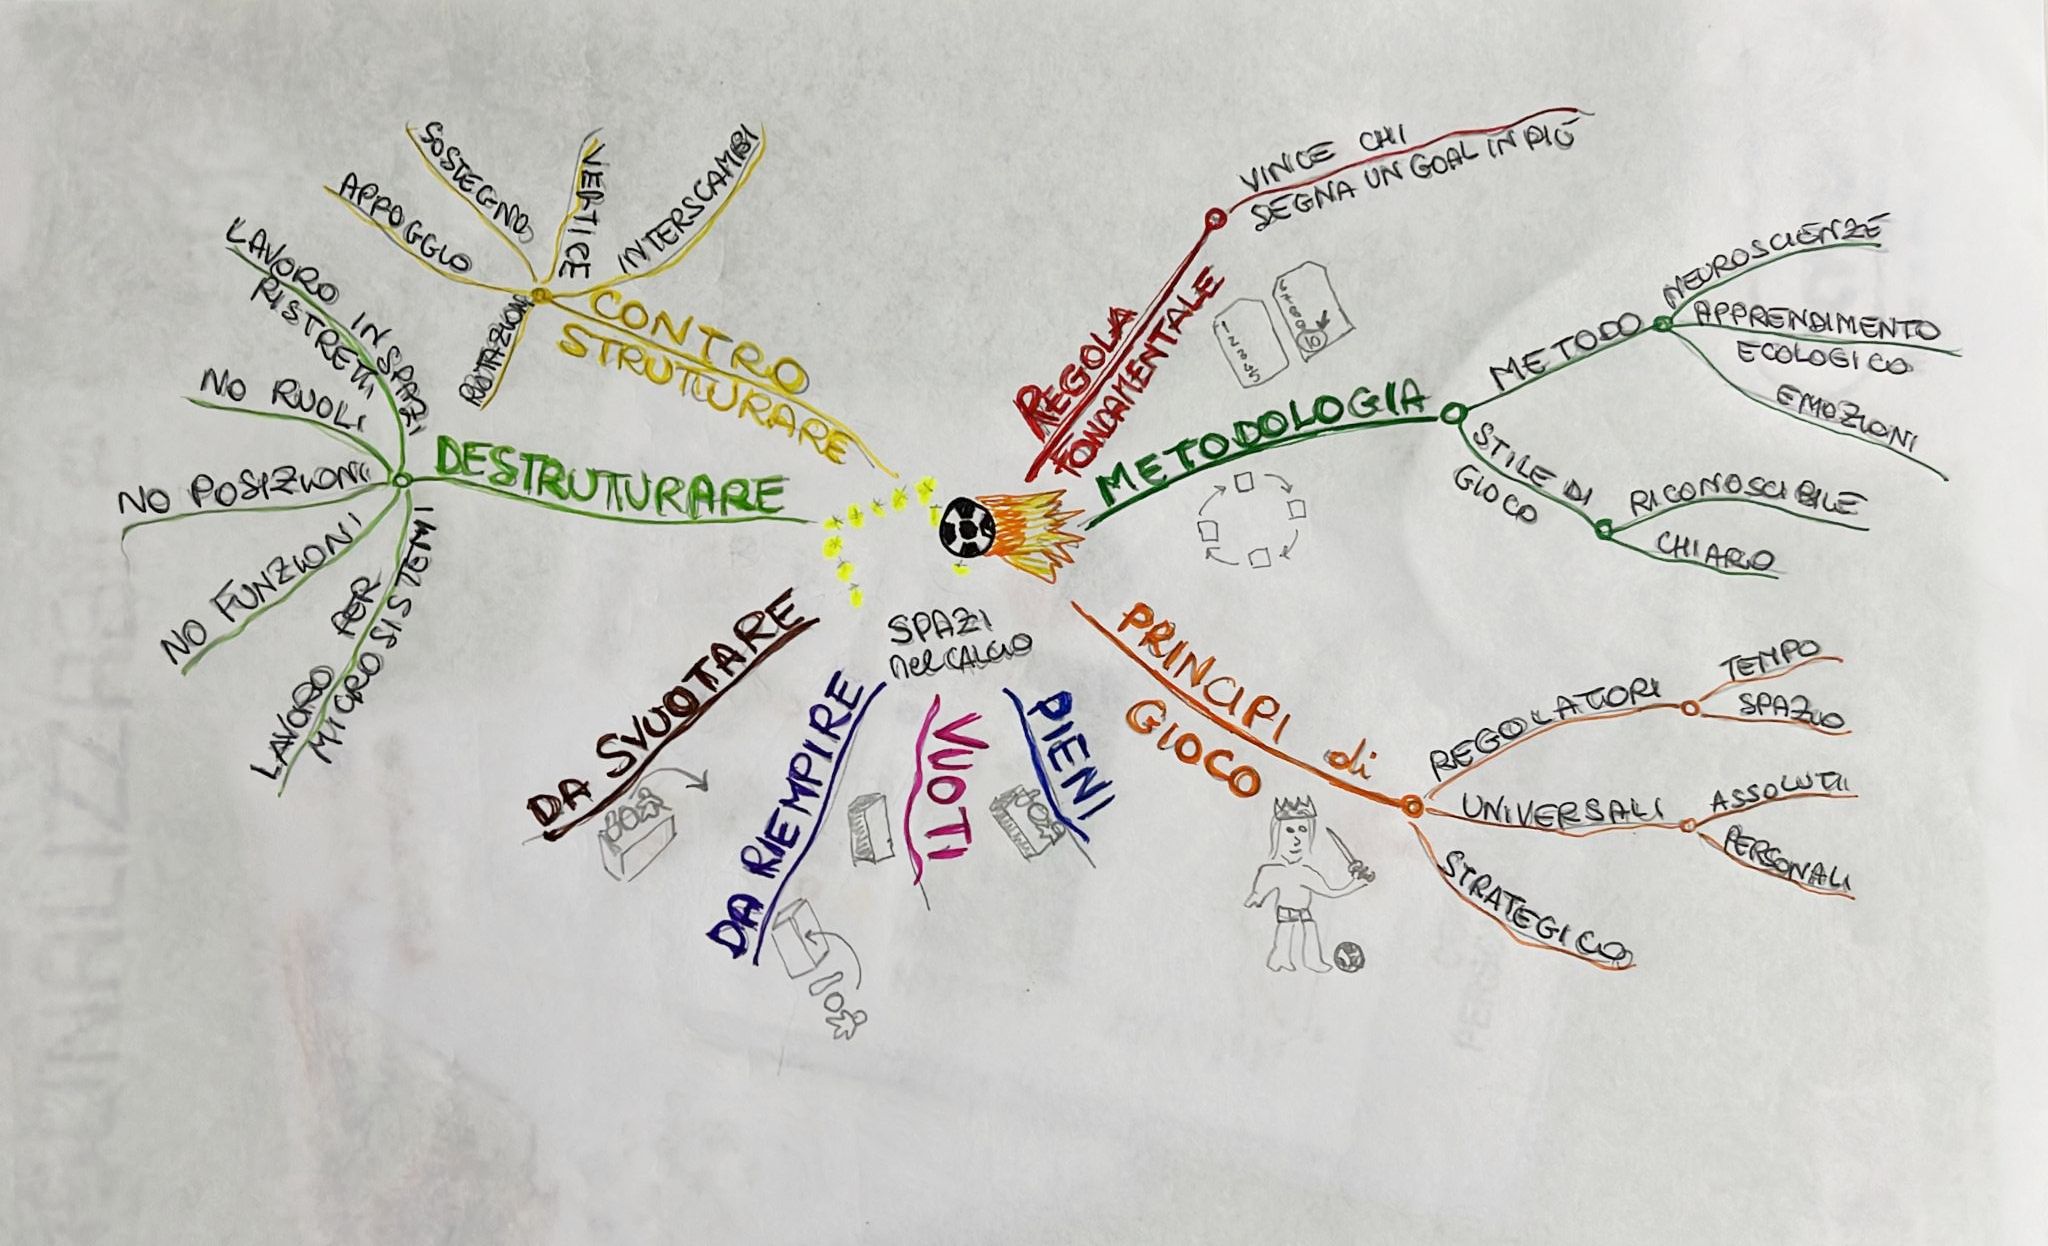 SPAZI
nel CALCIO
REGOLA
FONDAMENTALE
VINCE CHI
SEGNA UN GOAL IN PIÙ
METODOLOGIA
METODO
NEUROSCIENZE
APPRENDIMENTO
ECOLOGICO
EMOZIONI
STILE DI
GIOCO
RICONOSCIBILE
CHIARO
PRINCIPI di
GIOCO
REGOLATORI
TEMPO
SPAZIO
UNIVERSALI
ASSOLUTI
PERSONALI
STRATEGICO
PIENI
VUOTI
DA RIEMPIRE
DA SVUOTARE
DESTRUTTURARE
LAVORO IN SPAZI
RISTRETTI
NO RUOLI
NO POSIZIONI
NO FUNZIONI
LAVORO PER
MICROSISTEMI
CONTRO
STRUTTURARE
APPOGGIO
SOSTEGNO
VERTICE
INTERSCAMBI
ROTAZIONI